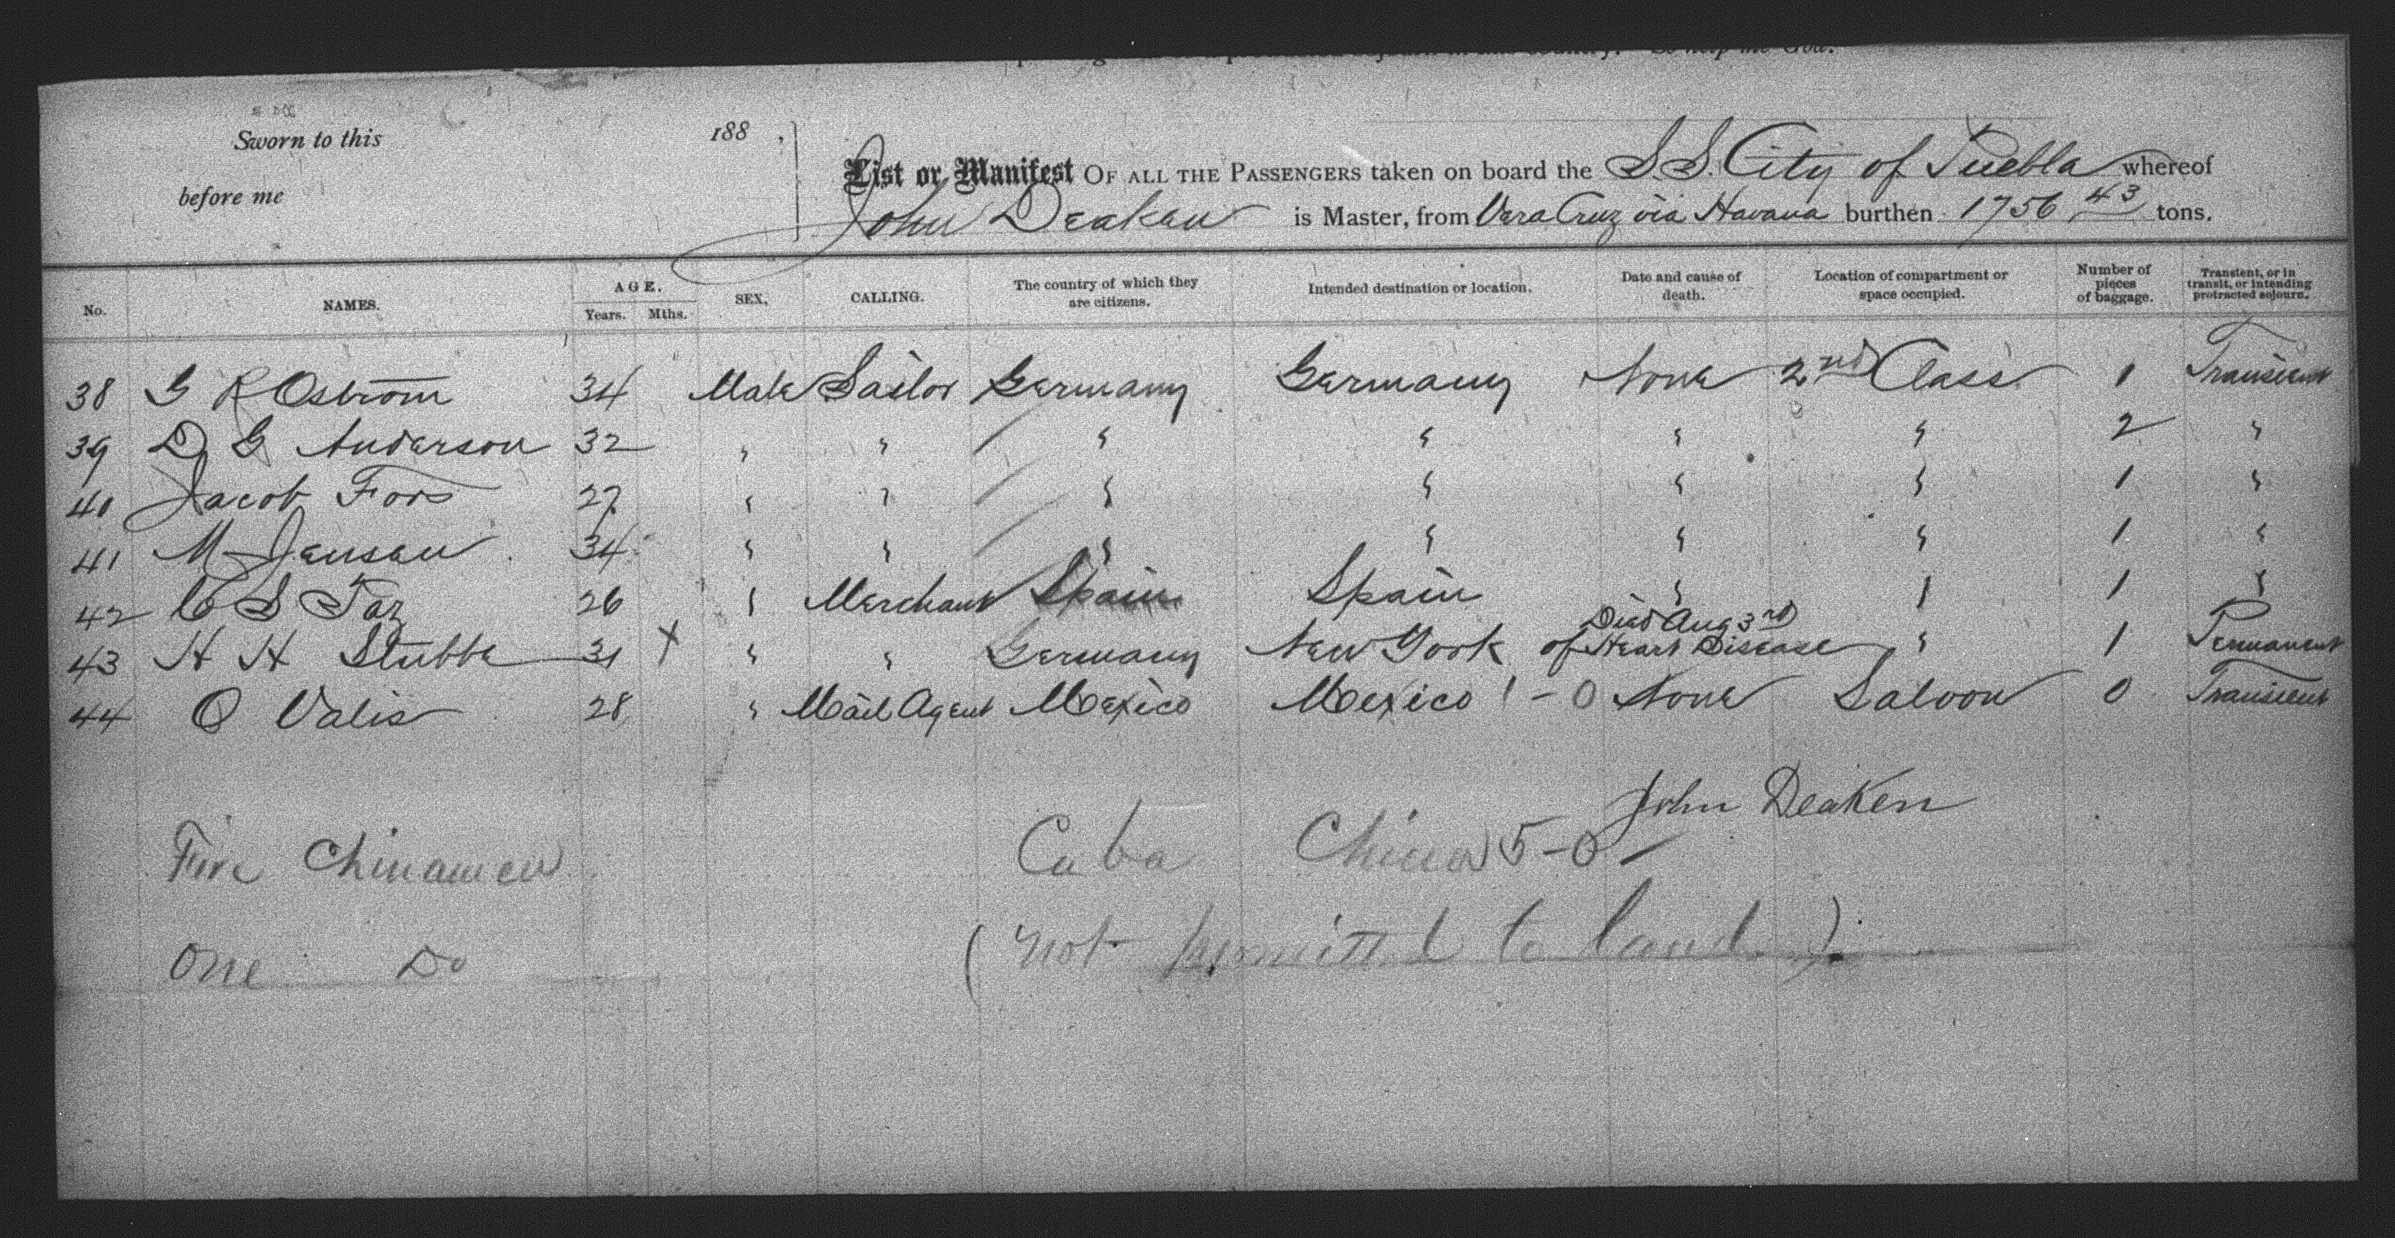 Sworn to this 188 ,
before me
List or Manifest OF ALL THE PASSENGERS taken on board the S.S. City of Puebla whereof
John Deaken is Master, from Vera Cruz via Havana burthen 1756 43 tons.
No. NAMES. AGE. Years. Mths. SEX. CALLING. The country of which they are citizens. Intended destination or location. Date and cause of death. Location of compartment or space occupied. Number of pieces of baggage. Transient, or in transit, or intending protracted sojourn.
38 G R Ostrom 34 Male Sailor Germany Germany None 2nd Class 1 Transient
39 D G Anderson 32 " " " " " " 2 "
40 Jacob Fors 27 " " " " " " 1 "
41 M Jensen 34 " " " " " " 1 "
42 C S Taz 26 " Merchant Spain Spain " " 1 "
43 H H Stubbe 31 X " " Germany New York Died Aug 3rd of Heart Disease " 1 Permanent
44 O Valis 28 " Mail Agent Mexico Mexico 1-0 None Saloon 0 Transient
John Deaken
Five Chinamen Cuba China 5-0
One Do (not permitted to land)